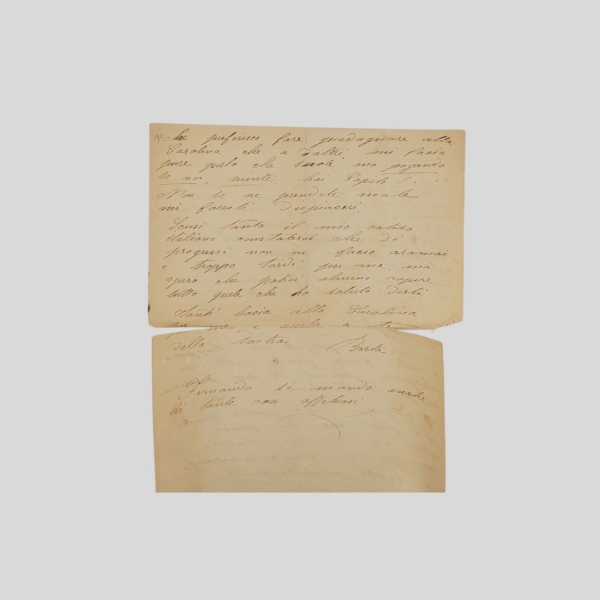 preferisco fare guadagnare alla
Carolina che a d'altri, mi facia
pure quelo che vuole ma pagando
se no, niente, hai Capito! ...
Non te ne prendete male
mi faresti dispiaceri
Scusi tanto il mio cativo
italiano constaterai che di
progressi non ne facio oramai
e troppo tardi per me, ma
spero che potrai almeno capire
tutto quelo che ho voluto dirti
Tanti bacia alla Carolina
per me, e anche a te
della vostra Berta
Fernando ti manda anche
lui tante cose affettuosi